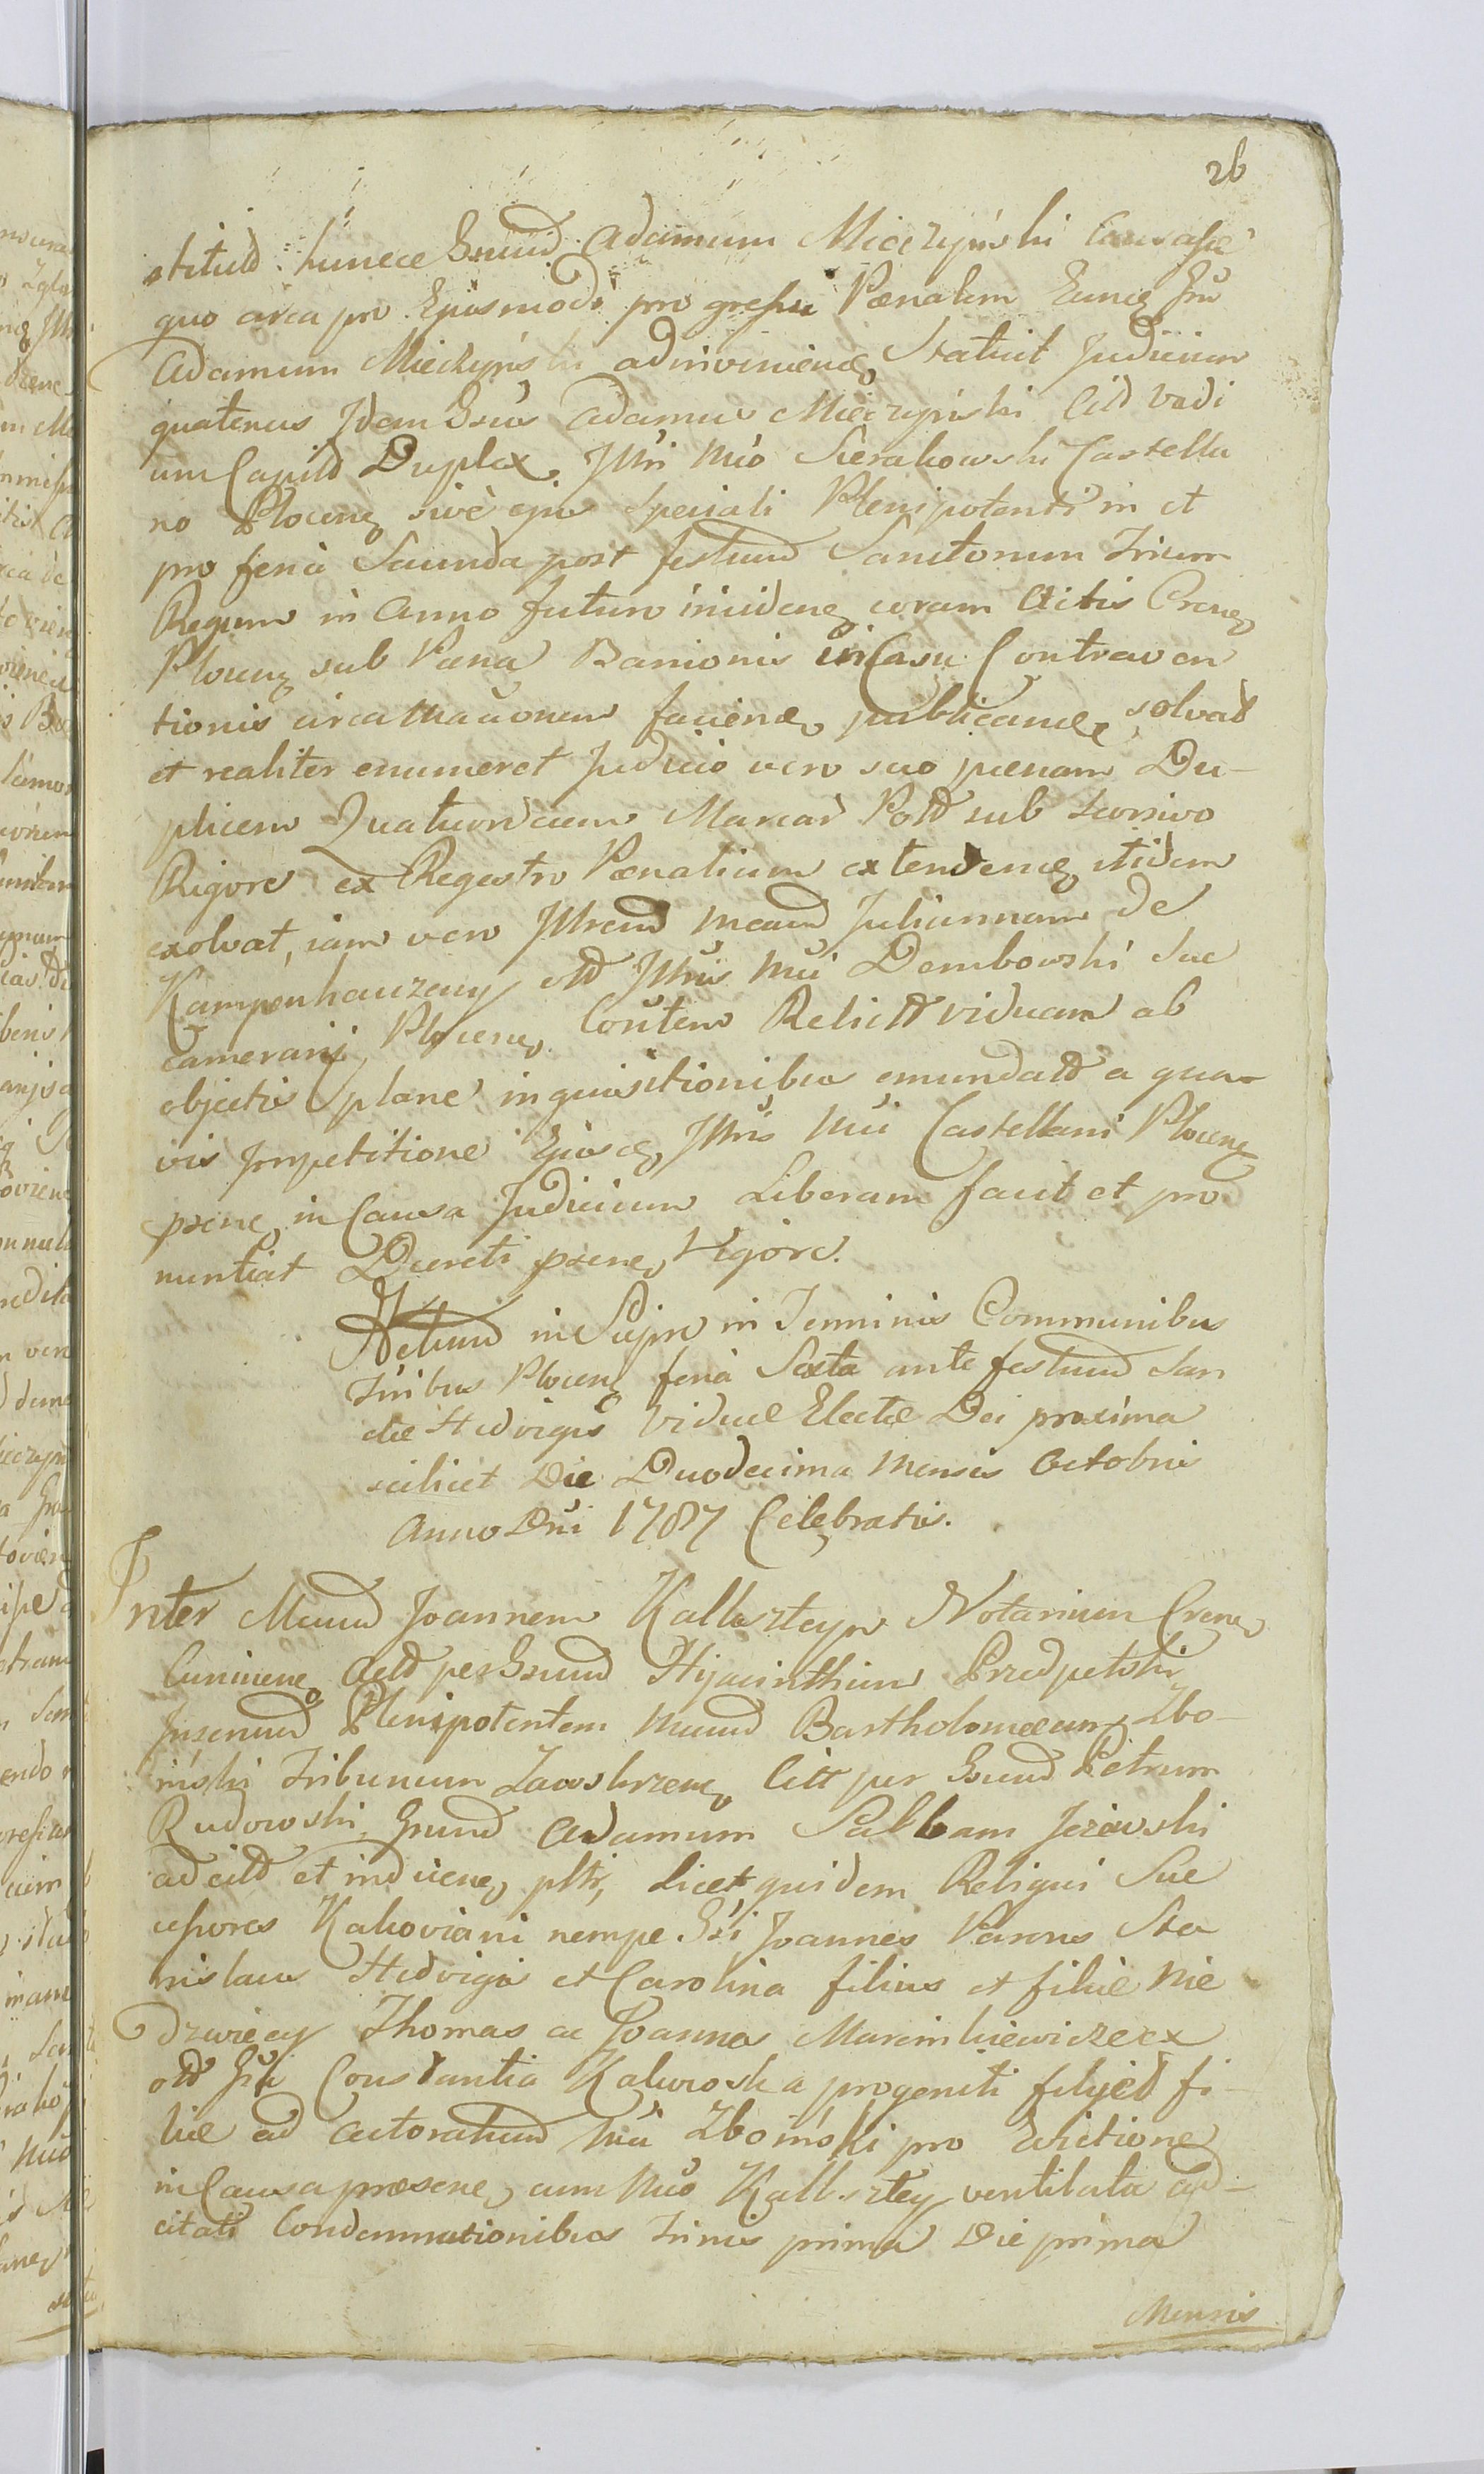 26
stitutd hunece Gnud Adamum Mieczyński Causasse
quo circa pro Ejusmodi progressu Pœnalem Eunq Gru
Adamum Mieczyński adinvenienq Statuit Judicium
quatenus Idem Gsus Adamus Mieczyński Citd Vadi
um Capitd Duplex Jllri Mio Sierakowski Castella
no Plocenq sivè ejus Speciali Plenipotenti in et
pro feria Secunda post festumd Sanctorum Trium
Regum in Anno futuro incidenq coram Actis Crenq
Plocenq sub Pæna Banionis in Casu Contraven
tionis circa Mationem facienq publicandæ solvat
et realiter enumeret Judicio vero suo pœnam Du-
plicem Quatuordecim Marcar Poltt sub Recursivo
Rigore ex Regestro Pœnalium extendenq itidem
exolvat, iam vero Jllremd Meamd Juliannam de
Kampenhauzeny oltt Jllris Mui Dembowski Suc
camerarij Plocenq Coñtem Relictt viduam ab
objectis plane inquisitionibus emundatt a qua-
vis jmpetitione Ejusq Jllris Mui Castellani Plocenq
psenq in Causa Judicium Liberam facit et pro
nuntiat Decreti psenq Vigore.
Actumd in Sciprc in Terminis Communibus
Tribus Plocenq feria Sexta ante festumd San
ctæ Hedvigis Viduæ Electæ Dei proxima
scilicet Die Duodecima Mensis Octobris
Anno Dni 1787 Celebratis.
Inter Mnumd Joannem Kallszteyn Notarium Crenq
Cuninenq Actd per Gnumd Hyacinthum Przedpetski
Jnsernumd Plenipotentem Mnumd Bartholomæum Zbo-
iński Tribunum Zawskrzenq Citt per Gnumd Petrum
Rudowski Gnumd Adamum Salbam Jeżewski
ad citd et inducenq pltr, Licet quidem Reliqui Suc
cessores Kakoviani nempe Gsi Joannes Parens Sta
nislaus Hedvigis et Carolina filius et filiæ Nie
dzwiecy Thomas ac Joanna Marcinkiewiczecx
oltt Gsa Constantia Kakowska progeniti filijct fi-
liæ ad Actoratumd Mui Zboiński pro Evictione
in Causa præsenq cum Muo Kallsztey ventilata ad-
citati Condemnationibus Trinis prima Die prima
Mensis